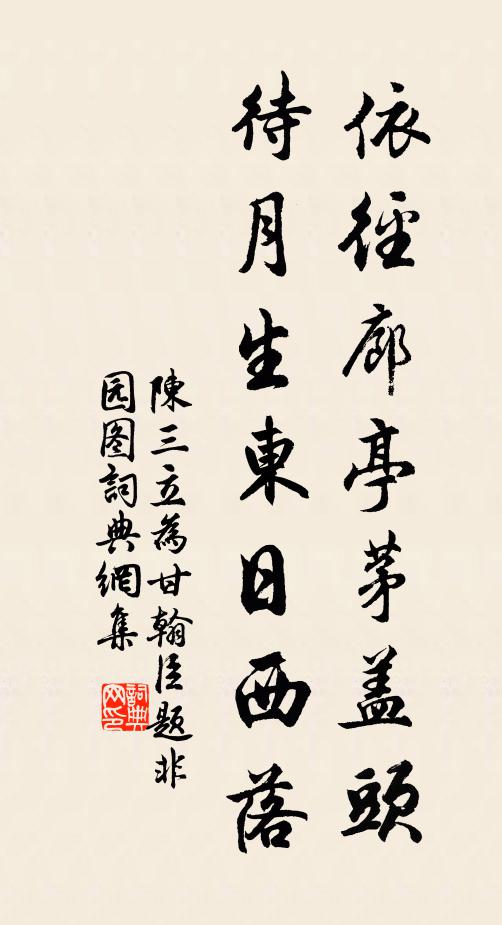 依徑廊亭茅盖頭
待月生東日西落
陳三立為甘翰臣题非
园图詞典網集
詞典网印